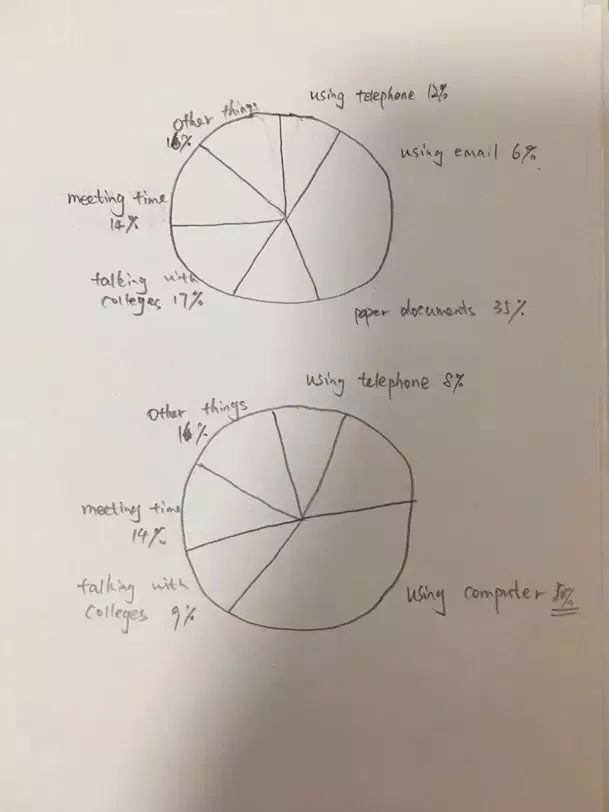 using telephone 12%
Other things
16%
using email 6%
meeting time
14%
talking with
colleges 17%
paper documents 35%
using telephone 8%
Other things
16%
meeting time
14%
talking with
colleges 9%
using computer